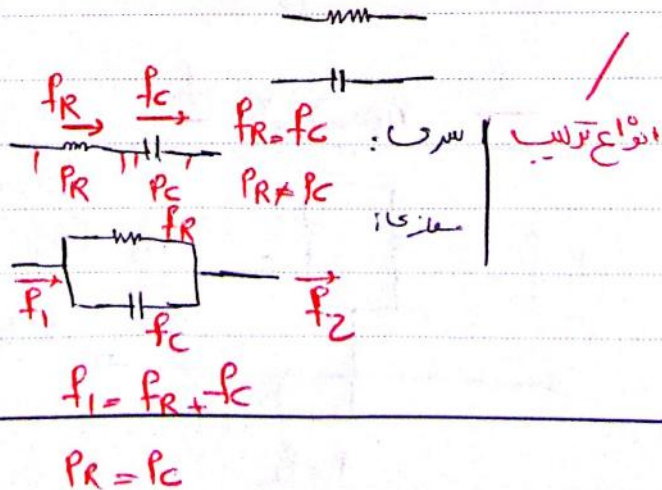 انواع ترکیب
سری:
f_R f_C f_R = f_C
P_R P_C P_R ≠ P_C
موازی:
f_R
f_1 f_2
f_C
f_1 = f_R + f_C
P_R = P_C